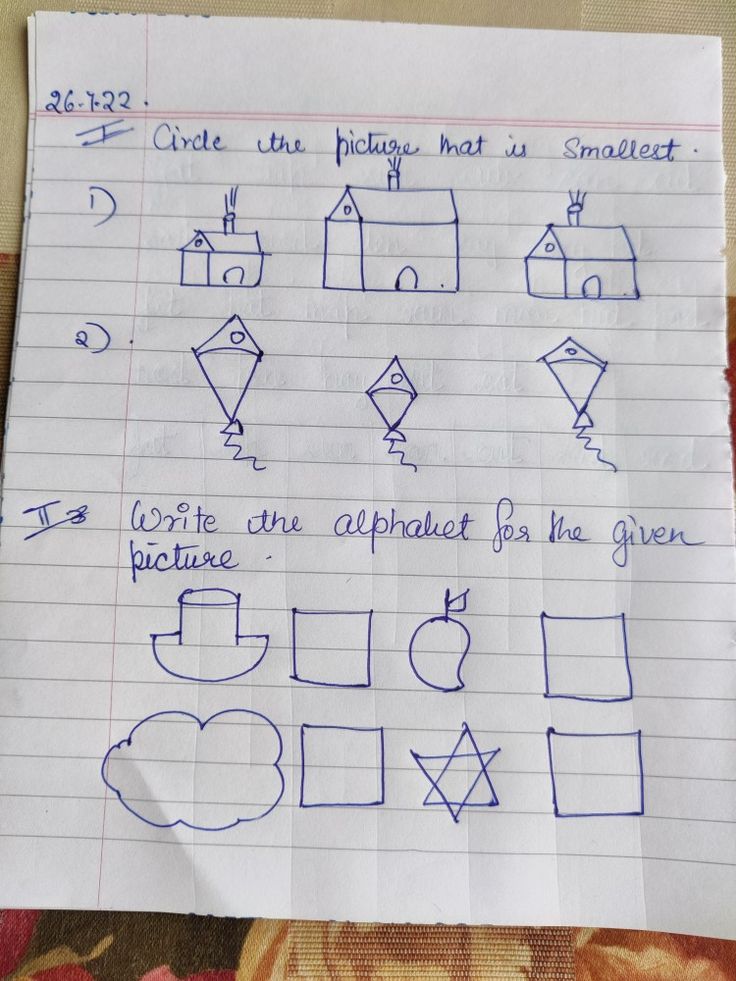 26.7.22.
I Circle the picture that is smallest.
1)
2).
II Write the alphabet for the given
picture.